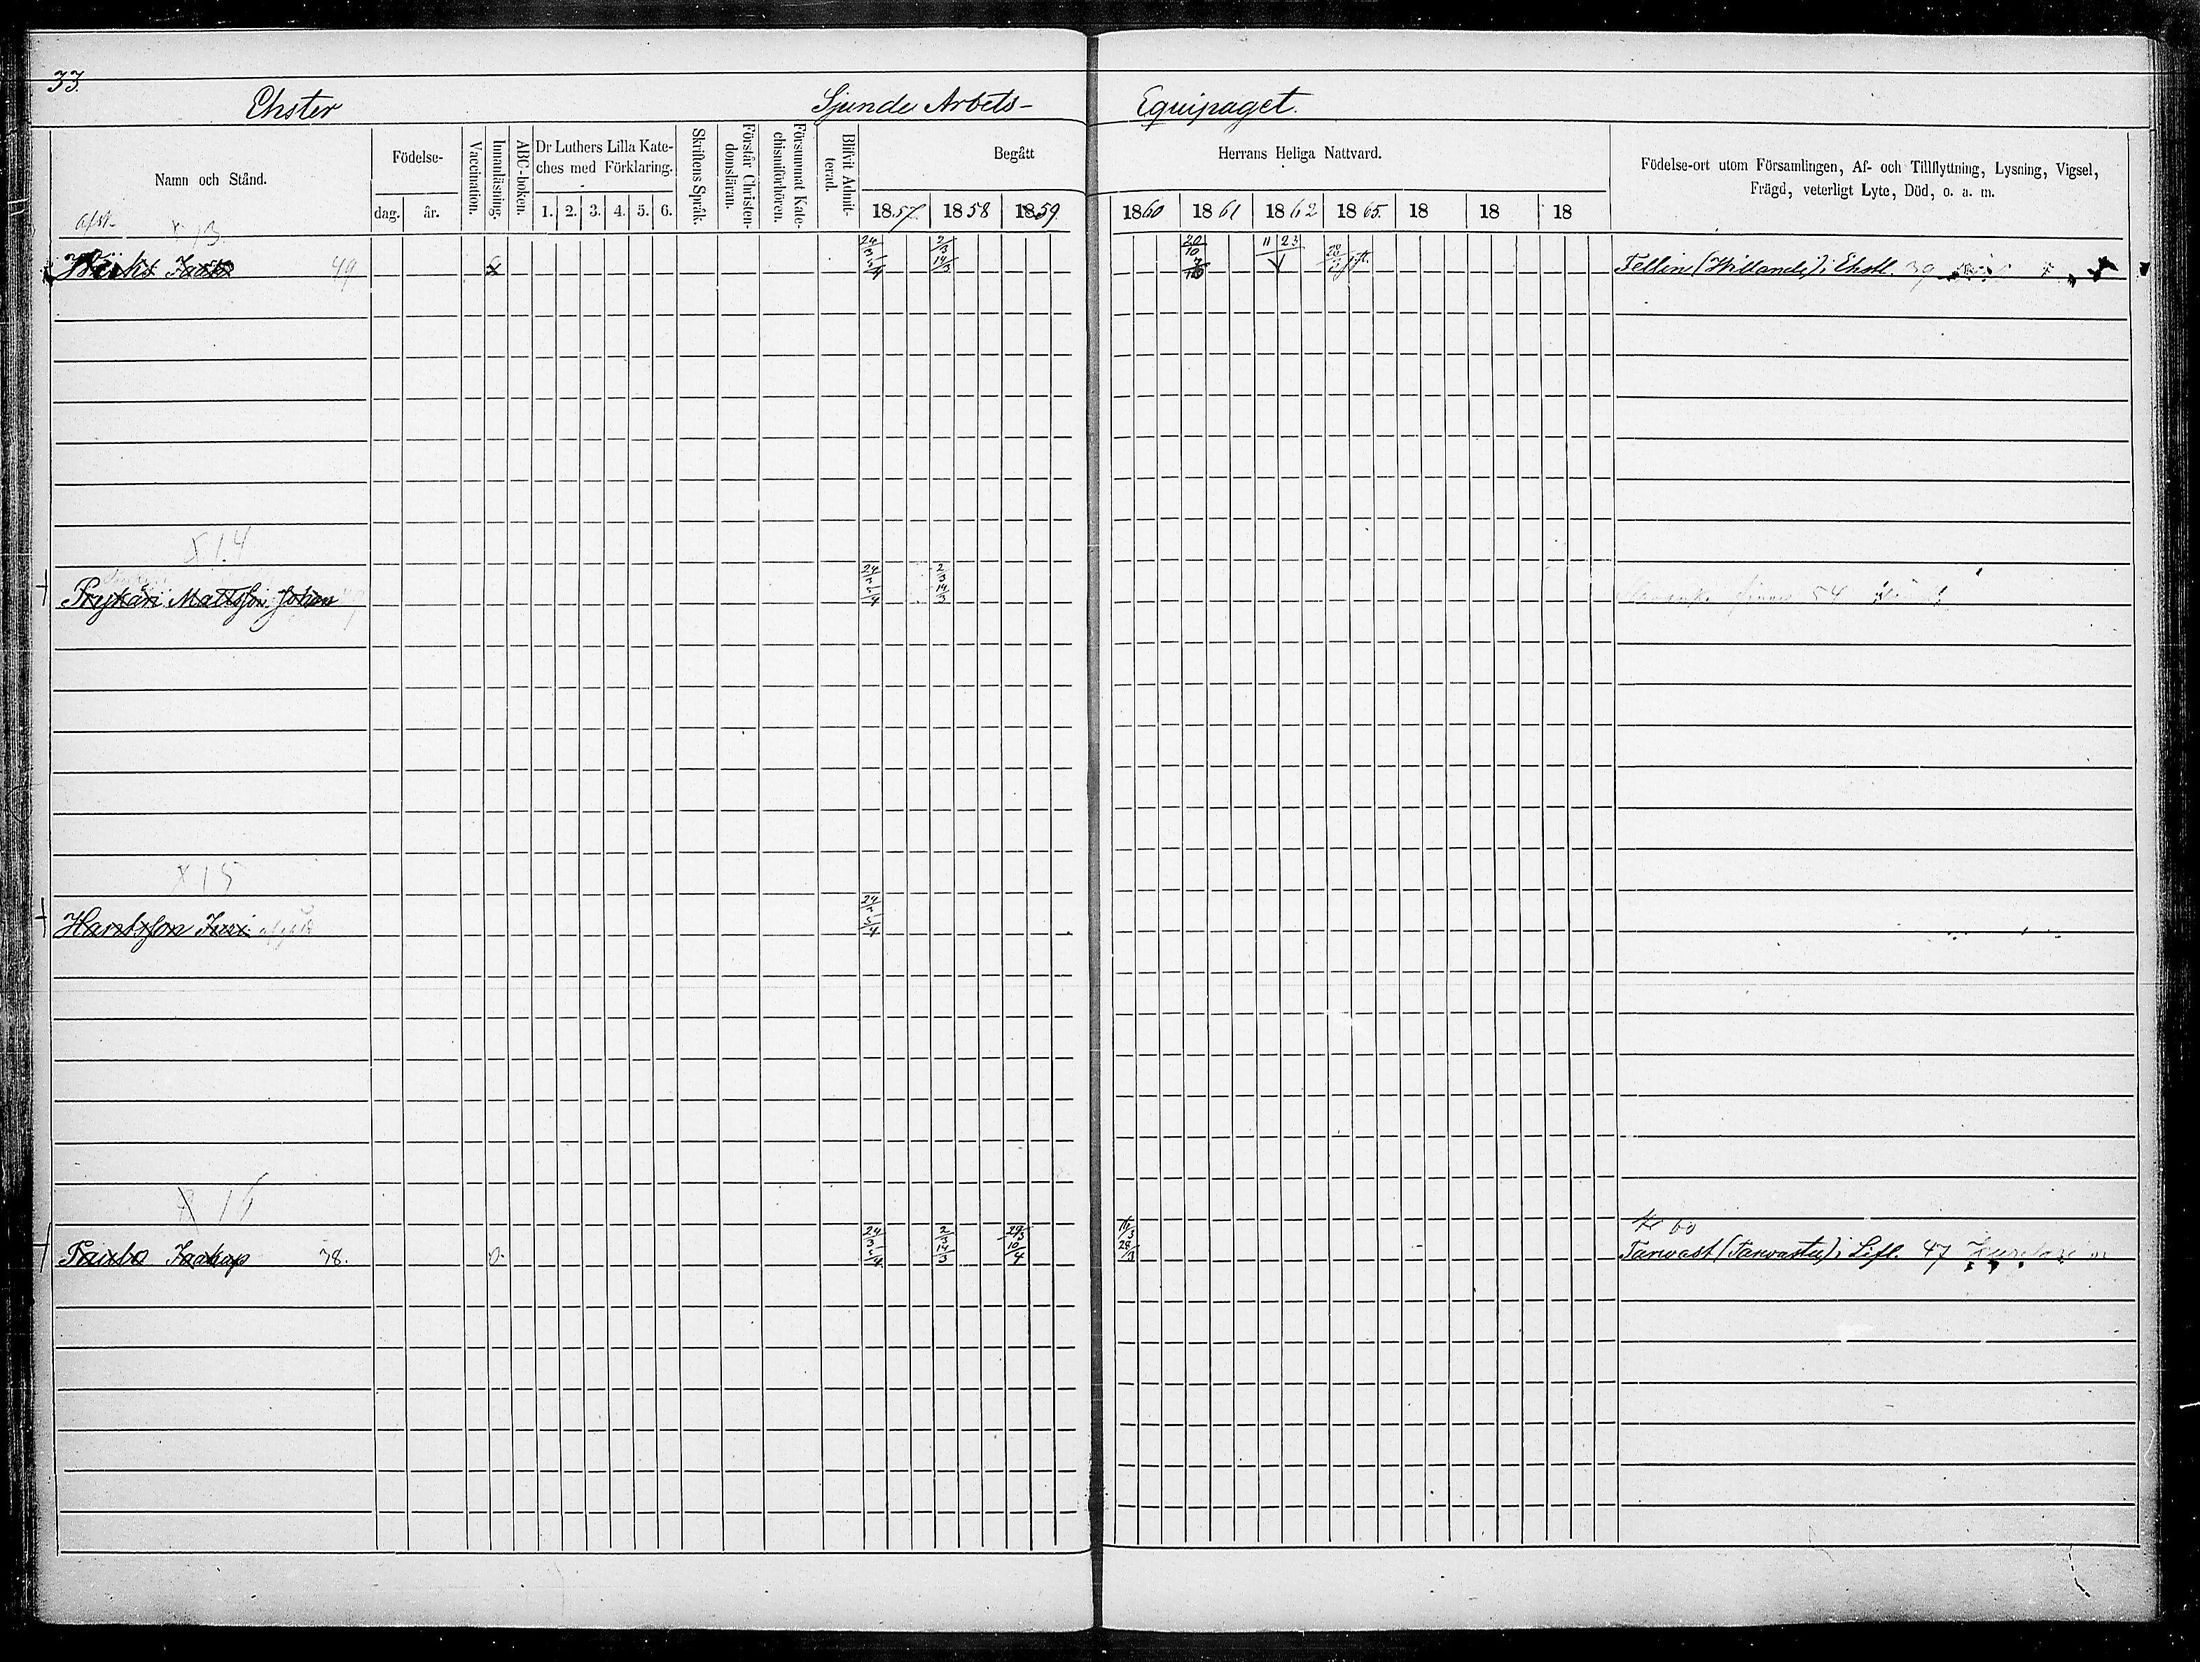 33.
Ehster Sjunde Arbets- Equipaget.
Namn och Stånd.
Födelse-
dag. år.
Vaccination.
Innanläsning.
ABC-boken.
Dr Luthers Lilla Kate-
ches med Förklaring.
1. 2. 3. 4. 5. 6.
Skriftens Språk.
Förstår Christen-
domsläran.
Försummat Kate-
chismiförhören.
Blifvit Admit-
terad.
Begått Herrans Heliga Nattvard.
1857. 1858 1859. 1860 1861 1862 1865. 18 18 18
Födelse-ort utom Församlingen, Af- och Tillflyttning, Lysning, Vigsel,
Frägd, veterligt Lyte, Död, o. a. m.
afsk.
x 13.
Jaak 49 24/3 5/4 2/3 14/3 20/10 11 23 Fellin (Willandi) i Ehstl. 39
514
Mattsson Johan 24/3 5/4 2/3 14/3 54
x 15
Hantsson Juri 24/3 5/4
x 16
Jaakap 78. 24/3 5/4 2/3 14/3 29/3 10/4 14/3 28/3
60
Tarwast (Tarwastu) i Lifl. 47